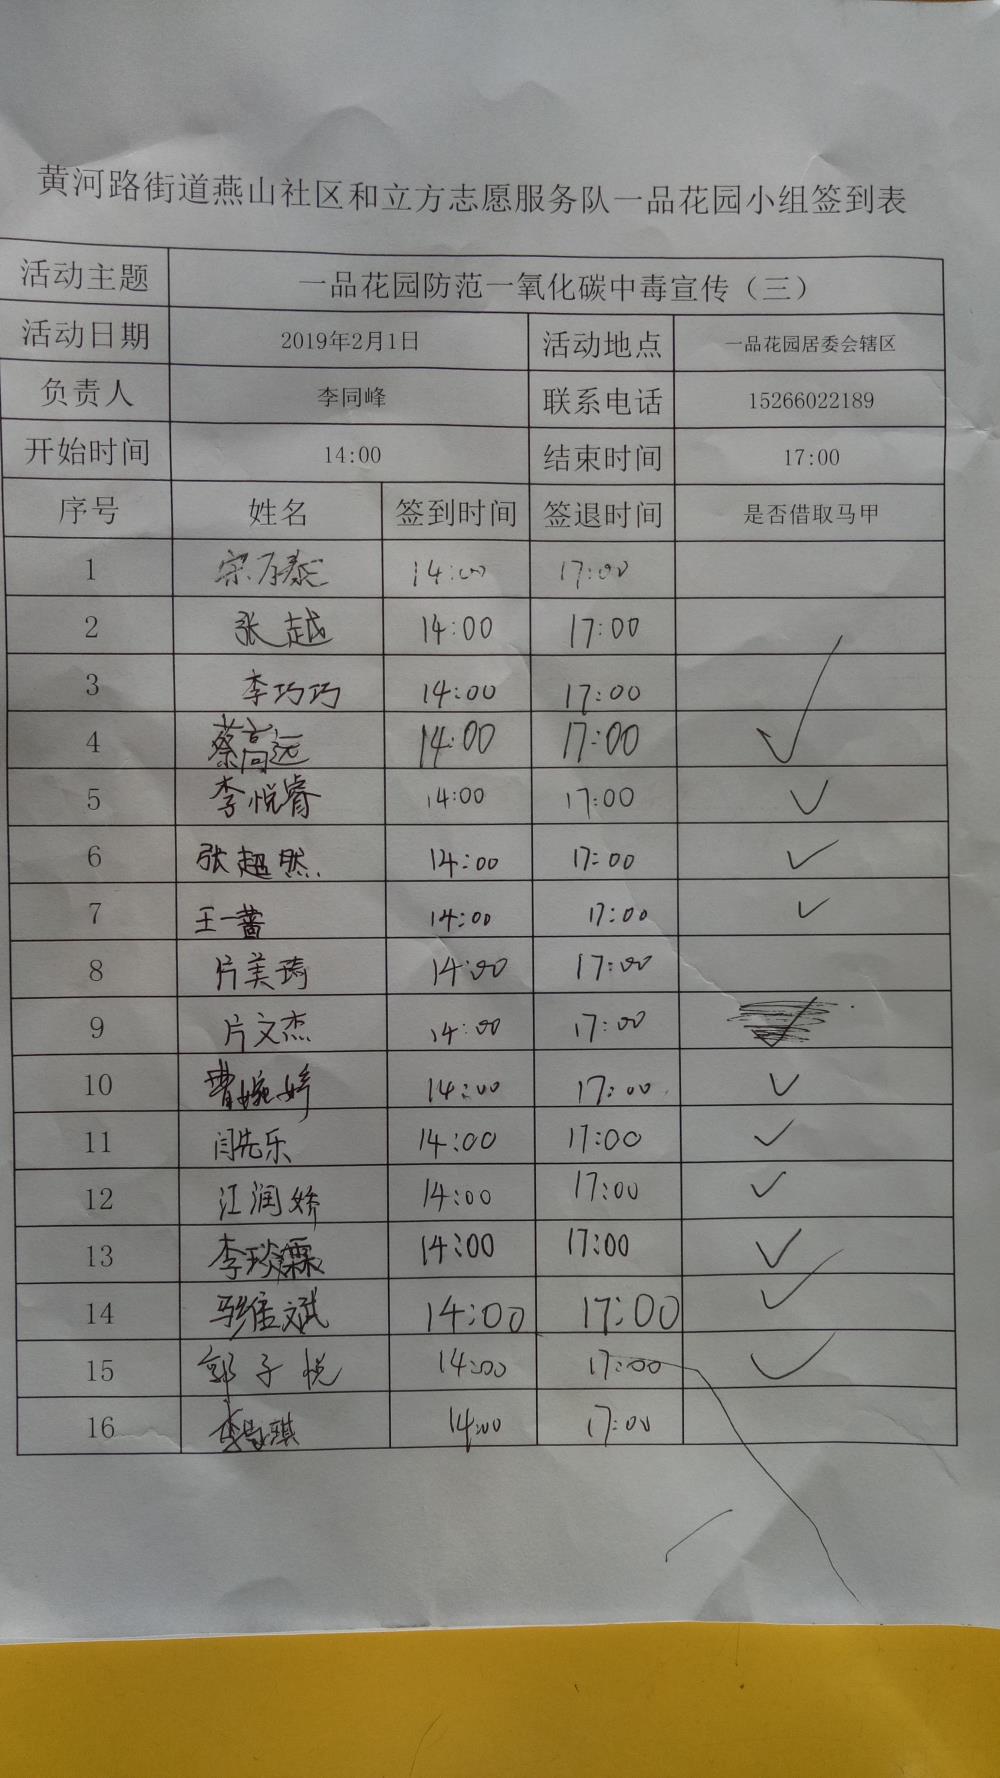 黄河路街道燕山社区和立方志愿服务队一品花园小组签到表
活动主题 一品花园防范一氧化碳中毒宣传（三）
活动日期 2019年2月1日 活动地点 一品花园居委会辖区
负责人 李同峰 联系电话 15266022189
开始时间 14:00 结束时间 17:00
序号 姓名 签到时间 签退时间 是否借取马甲
1 宗 14:00 17:00
2 张越 14:00 17:00
3 李巧巧 14:00 17:00
4 蔡高远 14:00 17:00 ✓
5 李悦睿 14:00 17:00 ✓
6 张超然 14:00 17:00 ✓
7 王一蔷 14:00 17:00 ✓
8 片美琦 14:00 17:00
9 片文杰 14:00 17:00
10 曹婉婷 14:00 17:00 ✓
11 闫先乐 14:00 17:00 ✓
12 江润娇 14:00 17:00 ✓
13 李琰霖 14:00 17:00 ✓
14 维斌 14:00 17:00 ✓
15 郭子悦 14:00 17:00 ✓
16 李琪 14:00 17:00